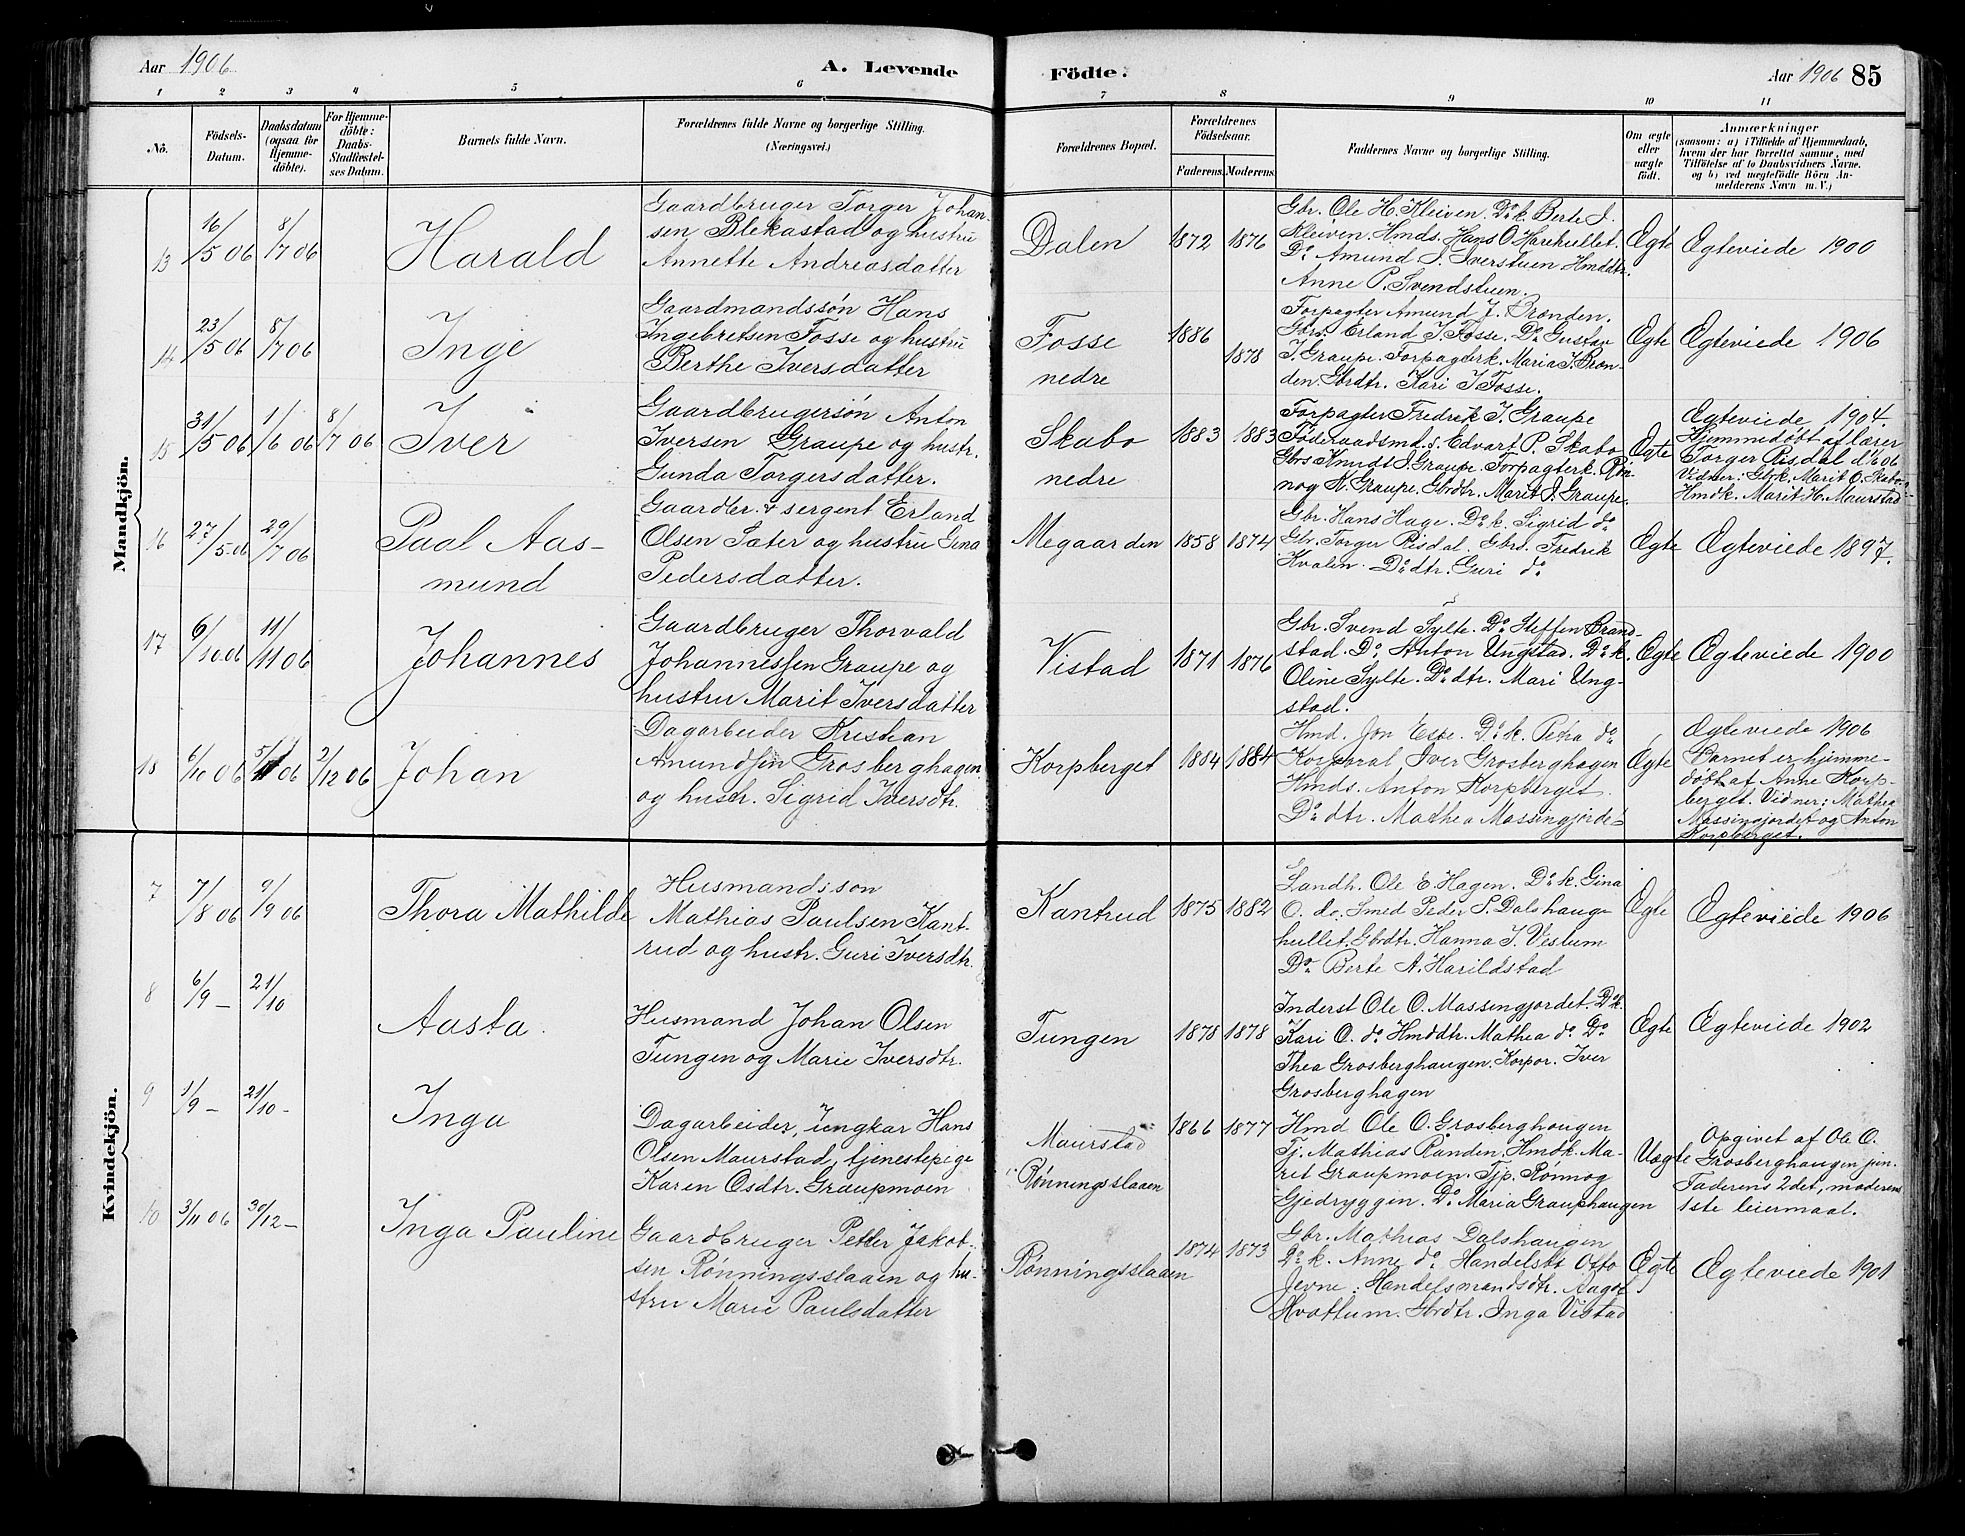 Aar 1906
A. Levende
Födte.
Aar 1906 85
1 2 3 4 5 6 7 8 9 10 11
No.
Födsels-
Datum.
Daabsdatum
(ogsaa for
Hjemme-
döbte).
For Hjemme-
döbte:
Daabs-
Stadfæstel-
ses Datum.
Barnets fulde Navn.
Forældrenes fulde Navne og borgerlige Stilling.
(Næringsvei.)
Forældrenes Bopæl.
Forældrenes
Födselsaar.
Faderens. Moderens.
Faddernes Navne og borgerlige Stilling.
Om ægte
eller
uægte
födt.
Anmærkninger
(saasom: a) i Tilfælde af Hjemmedaab,
hvem der har forrettet samme, med
Tilföielse af to Daabsvidners Navne.
og b) ved uægtefödte Börn An-
melderens Navn m. V.)
Mandkjön.
13
16/5 06
8/7 06
Harald
Gaardbruger Torger Johan-
sen Blekastad og hustru
Annette Andreasdatter
Dalen
1872 1876
Gbr. Ole H. Kleiven. Do k. Berte J.
Kleiven. Hmds. Hans O. Harehullet.
Do Amund J. Iverstuen Hmddtr.
Anne P. Svendstuen.
Ægte
Ægteviede 1900
14
23/5 06
8/7 06
Inge
Gaardmandssön Hans
Ingebretsen Fosse og hustru
Berthe Iversdatter
Fosse
nedre
1886
1878
Forpagter Amund J. Brænden.
Gbrs. Erland J. Fosse. Do Gustav
J. Graupe. Forpagterk. Maria J. Bræn-
den. Gbrdtr. Kari J Fosse.
Ægte
Ægteviede 1906
15
31/5 06
1/6 06
8/7 06
Iver
Gaardbrugersön Anton
Iversen Graupe og hustr.
Gunda Torgersdatter.
Skabo
nedre
1883 1883
Forpagter Fredrik J. Graupe
Föderaadsmd. s. Edvart P. Skabo
Gbrs Knudt J. Graupe. Forpagterk. Rön-
nog A. Graupe, Gbrdtr. Marit J. Graupe.
Ægte
Ægteviede 1904.
Hjemmedöbt af lærer
Torger Risdal d 1/6 06
Vidner: Gbrk. Marit O. Skabo
Hmdk. Marit H. Maurstad
16
27/5 06
29/7 06
Paal Aas-
mund
Gaardbr. & sergent Erland
Olsen Sater og hustru Gina
Pedersdatter.
Megaarden
1858 1874
Gbr. Hans Hage. Do k. Sigrid do
Gbr. Torger Risdal. Gbrs. Fredrik
Kvalen. Do dtr. Guri do
Ægte
Ægteviede 1897.
17
6/10 06
11/11 06
Johannes
Gaardbruger Thorvald
Johannessen Graupe og
hustru Marit Iversdatter
Vistad
1871 1876
Gbr. Svend Sylte. Do Steffen Brand-
stad. Do Anton Ungstad. Do k.
Oline Sylte. Do dtr. Mari Ung-
stad.
Ægte
Ægteviede 1900
18
6/10 06
5/11 06
2/12 06
Johan
Dagarbeider Kristian
Amundsen Grosberghagen
og hustr. Sigrid Iversdtr.
Korpberget
1884 1884
Hmd. Jon Espe. Do k. Petra do
Korporal Iver Grosberghagen
Hmds. Anton Korpberget.
Do dtr. Mathea Massingjordet
Ægte
Ægteviede 1906
Barnet er hjemme-
döbt af Anne Korp-
berget. Vidner: Mathea
Massingjordet og Anton
Korpberget.
Kvindekjön.
7
7/8 06
9/9 06
Thora Mathilde
Husmandsson
Mathias Paulsen Kant-
rud og hustr. Guri Iversdtr.
Kantrud
1875 1882
Landh. Ole E. Hagen. Do k. Gina
O. do. Smed Peder S. Dalshauge
hullet. Gbrdtr. Hanna J. Veslum
Do Berte A. Harildstad
Ægte
Ægteviede 1906
8
6/9 -
21/10
Aasta.
Husmand Johan Olsen
Tungen og Marie Iversdtr.
Tungen
1878 1878
Inderst Ole O. Massingjordet. Do k.
Kari O. do Hmddtr. Mathea do Do
Thea Grosberghaugen. Korpor. Iver
Grosberghagen
Ægte
Ægteviede 1902
9
1/9 -
21/10 -
Inga
Dagarbeider, ungkar Hans
Olsen Maurstad, tjenestepige
Karen Osdtr. Graupmoen
Maurstad
Rønningsslaaen
1866 1877
Hmd Ole O. Grosberghaugen
Tj. Mathias Randen, Hmdk. Ma-
rit Graupmoen. Tjp. Rønnog
Gjedryggen. Do Maria Grauphaugen
Uægte
Opgivet af Ole O.
Grosberghaugen jun.
Faderens 2det, moderens
1ste leiermaal.
10
3/11 06
30/12 -
Inga Pauline
Gaardbruger Petter Jakob-
sen Rønningsslaaen og hu-
stru Marie Paulsdatter
Rønningsslaaen
1874 1873
Gbr. Mathias Dalshaugen
Do k. Anne do Handelsbt Otto
Jevne. Handelsmandsdtr. Aagot
Hvattum. Gbrdtr. Inga Vistad
Ægte
Ægteviede 1901